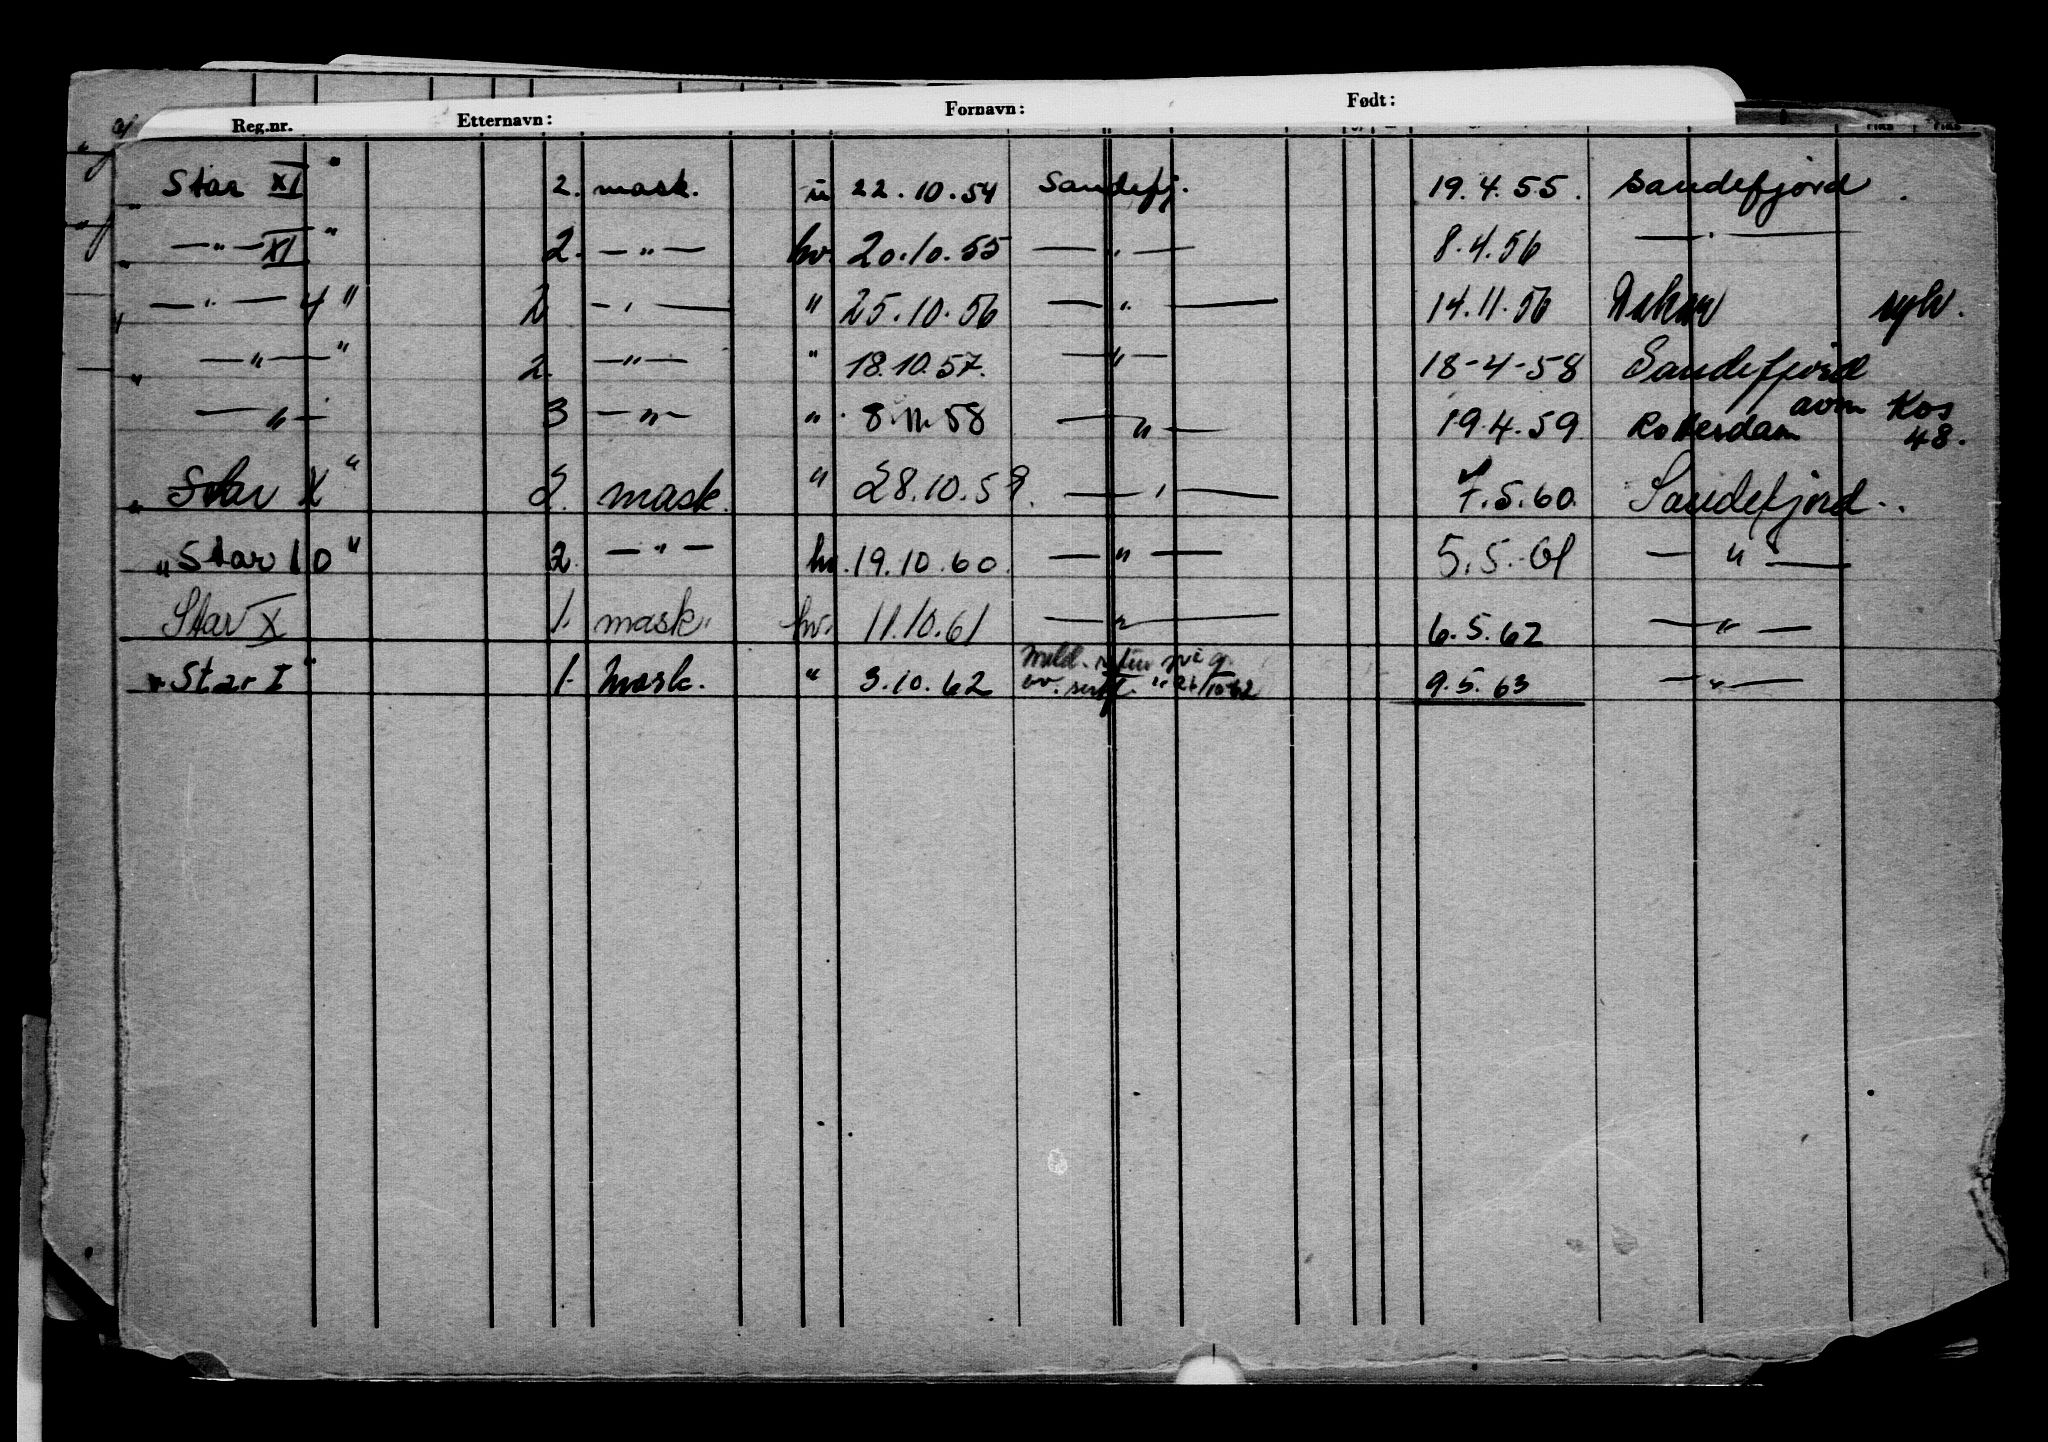 Reg.nr. Etternavn: Fornavn: Født:
„Star XI" 2. mask. u 22.10.54 Sandefj. 19.4.55. Sandefjord.
„—"— XI" 2. —"— hv. 20.10.55 —"— 8.4.56 —"—
—"— 4" 2 —"— " 25.10.56 —"— 14.11.56 syk.
„—"—" 2. —"— " 18.10.57. —"— 18-4-58 Sandefjord
—"— 3 —"— " 8.11.58 —"— 19.4.59 Rotterdam avm Kos 48.
„Star X" 2. mask. " 28.10.59. —"— 7.5.60. Sandefjord.
„Star 10" 2. —"— hv. 19.10.60. —"— 5.5.61 —"—
Star X 1. mask. hv. 11.10.61 —"— 6.5.62 —"—
„Star I" 1. mask. " 3.10.62 9.5.63 —"—